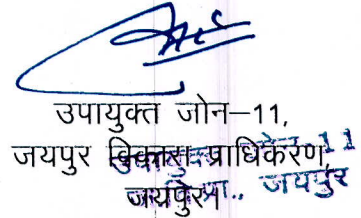 उपायुक्त जोन–11,
जयपुर विकास प्राधिकरण,
जयपुर।
जोन-11
जयपुर